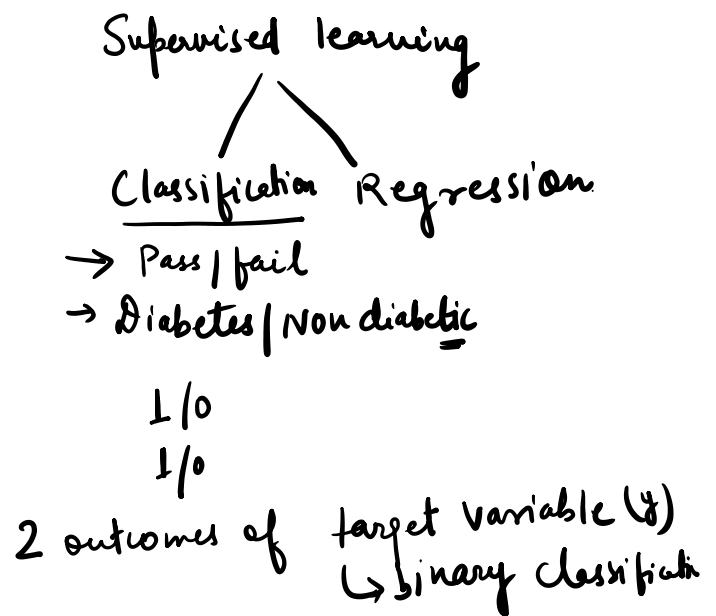 Supervised learning
Classification Regression
→ Pass/fail
→ Diabetes/Non diabetic
1/0
1/0
2 outcomes of target variable (y)
↳ binary classification